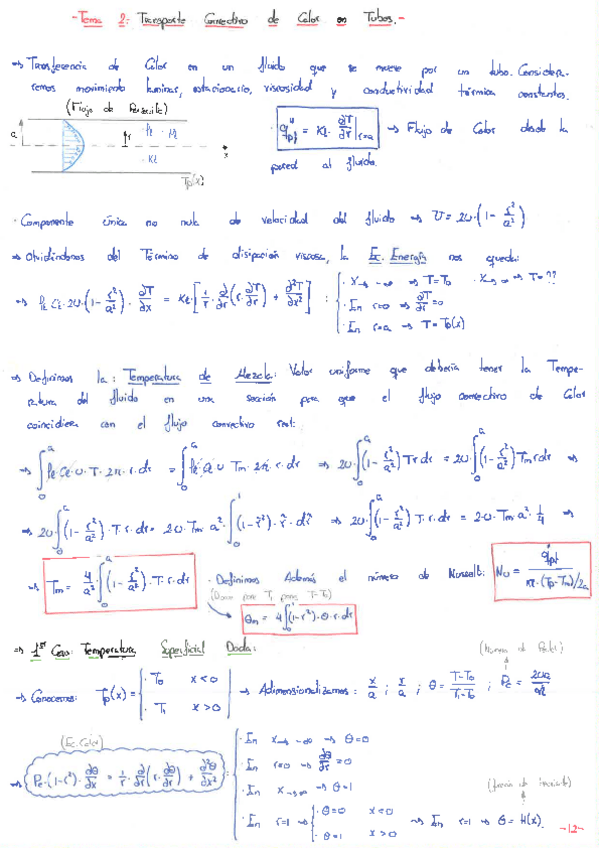 -Tema 2: Transporte Convectivo de Calor en Tubos.-
⇒ Transferencia de Calor en un fluido que se mueve por un tubo. Considera-
remos movimiento laminar, estacionario, viscosidad y conductividad térmica constantes.
(Flujo de Poiseuille)
a r x Tp(x)
q''pf = Kl · ∂T/∂r |r=a → Flujo de Calor desde la
pared al fluido.
· Componente única no nula de velocidad del fluido ⇒ U = 2U·(1 - r²/a²)
⇒ Olvidándonos del Término de disipación viscosa, la Ec. Energía nos queda:
⇒ ρl Cl·2U·(1 - r²/a²)·∂T/∂x = Kl·[1/r·∂/∂r(r·∂T/∂r) + ∂²T/∂x²] :
· x→-∞ ⇒ T=T0 · x→∞ ⇒ T=??
· En r=0 ⇒ ∂T/∂r=0
· En r=a → T=Tp(x)
⇒ Definimos la: Temperatura de Mezcla: Valor uniforme que debería tener la Tempe-
ratura del fluido en una sección para que el flujo convectivo de Calor
coincidiera con el flujo convectivo real:
⇒ ∫0^a ρl·Cl·U·T·2π·r·dr = ∫0^a ρl Cl U Tm·2π·r·dr ⇒ 2U∫0^a(1 - r²/a²)T r dr = 2U·∫0^a(1 - r²/a²)Tm r dr ⇒
⇒ 2U∫0^a(1 - r²/a²)·T·r·dr = 2·U·Tm a²·∫0^1(1 - r̂²)·r̂·dr̂ ⇒ 2U·∫0^a(1 - r²/a²)T·r·dr = 2·U·Tm·a²·1/4 ⇒
⇒ Tm = 4/a²·∫0^a(1 - r²/a²)·T·r·dr · Definimos Además el número de Nusselt: Nu = q''pf / Kl·(Tp-Tm)/2a
θm = 4∫0^1(1-r²)·θ·r·dr
⇒ 1er Caso: Temperatura Superficial Dada:
(Número de Peclet)
⇒ Conocemos: Tp(x) = { T0 x<0 ; T1 x>0 → Adimensionalizamos: x/a ; r/a ; θ = T-T0/T1-T0 ; Pe = 2Ua/αl
(Ec. Calor)
⇒ Pe·(1-r²)·∂θ/∂x = 1/r·∂/∂r(r·∂θ/∂r) + ∂²θ/∂x² :
· En x→-∞ → θ=0
· En r=0 ⇒ ∂θ/∂r=0
· En x→∞ → θ=1
· En r=1 → { · θ=0 x<0 ; · θ=1 x>0 ⇒ En r=1 → θ = H(x).
-12-